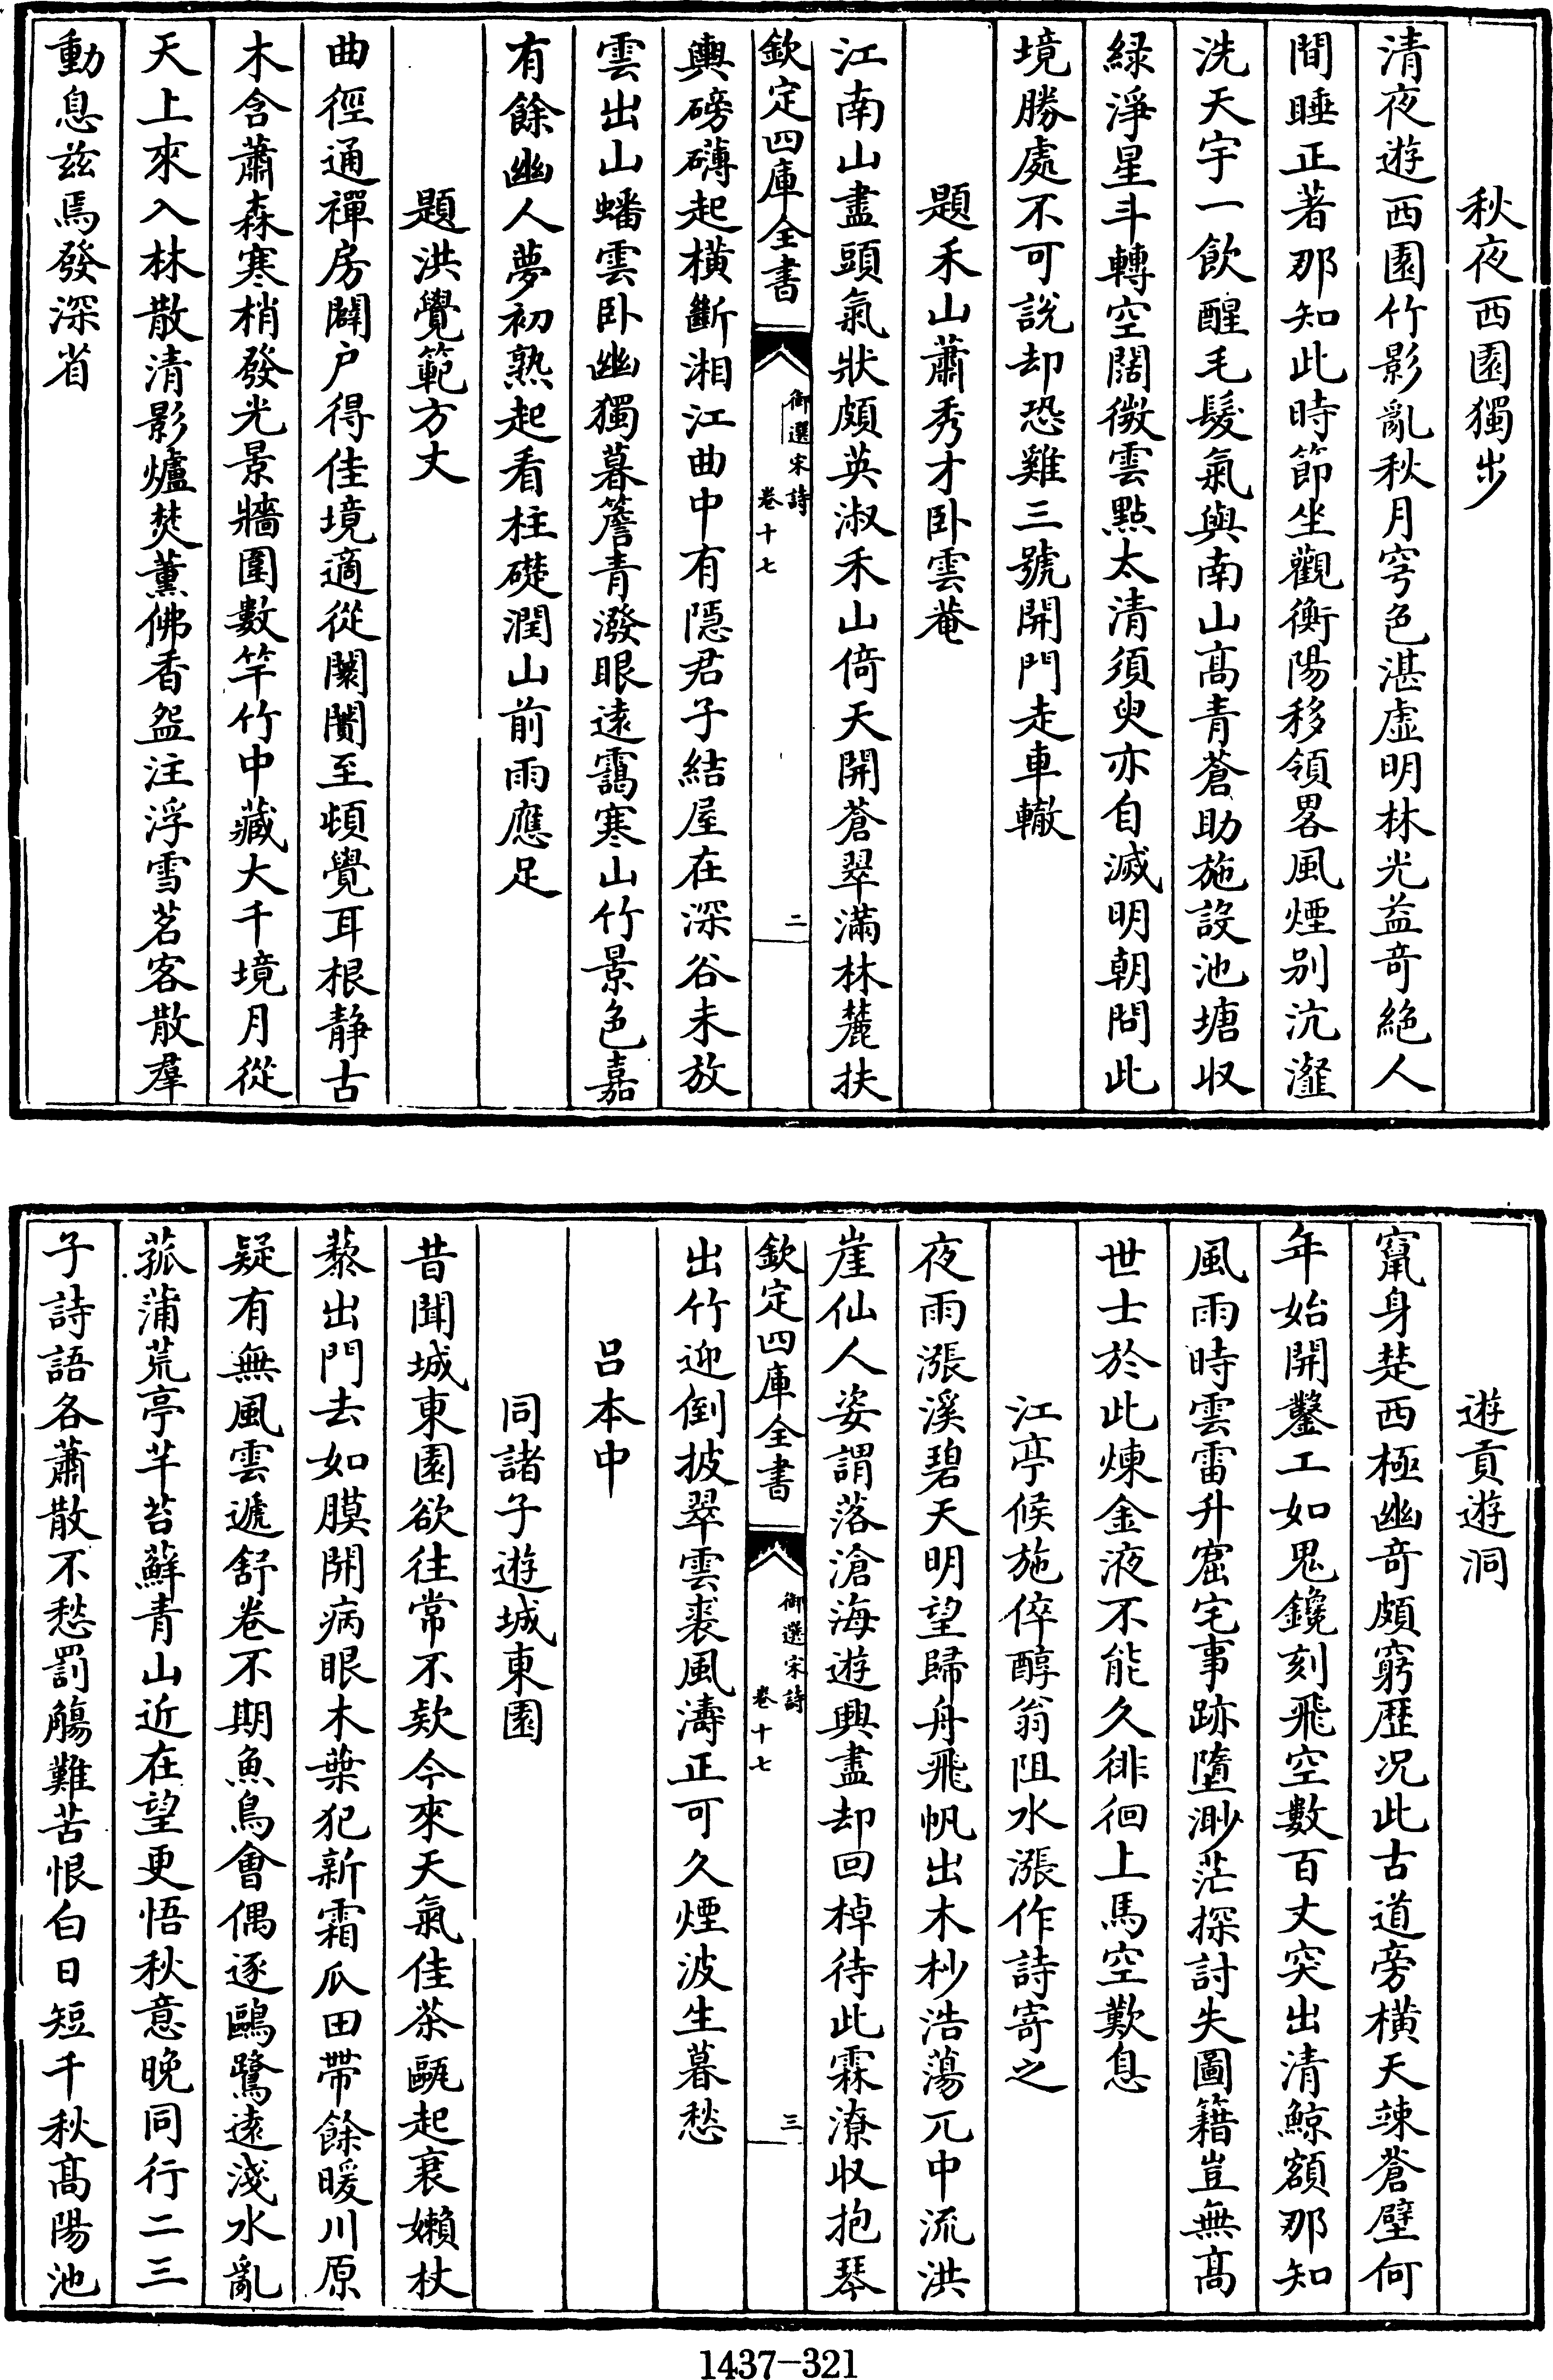 秋夜西園獨步
清夜遊西園竹影亂秋月穹色湛虛明林光益奇絶人
間睡正著那知此時節坐觀衡陽移領畧風煙别沆瀣
洗天宇一飲醒毛髮氣與南山髙青蒼助施設池塘収
緑淨星斗轉空闊微雲㸃太清須臾亦自滅明朝問此
境勝處不可說却恐雞三號開門走車轍
題禾山蕭秀才卧雲菴
江南山盡頭氣狀頗英淑禾山倚天開蒼翠滿林麓扶
欽定四庫全書
御選宋詩
卷十七
二
輿磅礴起橫斷湘江曲中有隱君子結屋在深谷未放
雲出山蟠雲卧幽獨暮簷青潑眼遠靄寒山竹景色嘉
有餘幽人夢初熟起看柱礎潤山前雨應足
題洪覺範方丈
曲徑通禪房闢户得佳境適從闤闠至頓覺耳根静古
木含蕭森寒梢發光景牆圍數竿竹中藏大千境月從
天上來入林散清影爐焚薰佛香盌注浮雪茗客散羣
動息兹焉發深省
遊貢遊洞
竄身楚西極幽奇頗窮歴况此古道旁横天竦蒼壁何
年始開鑿工如鬼鑱刻飛空數百丈突出清鯨額那知
風雨時雲雷升窟宅事跡墮渺茫探討失圖籍豈無髙
世士於此煉金液不能久徘徊上馬空歎息
江亭候施倅醇翁阻水漲作詩寄之
夜雨漲溪碧天明望歸舟飛帆出木杪浩蕩兀中流洪
崖仙人姿謂落滄海遊興盡却回棹待此霖潦収抱琴
欽定四庫全書
御選宋詩
卷十七
三
出竹迎倒披翠雲裘風濤正可久煙波生暮愁
吕本中
同諸子遊城東園
昔聞城東園欲往常不欵今來天氣佳茶甌起衰嬾杖
藜出門去如膜開病眼木葉犯新霜瓜田帶餘暖川原
疑有無風雲遞舒卷不期魚鳥會偶逐鷗鷺遠淺水亂
菰蒲荒亭芊苔蘚青山近在望更悟秋意晚同行二三
子詩語各蕭散不愁罰觴難苦恨白日短千秋髙陽池
1437-321